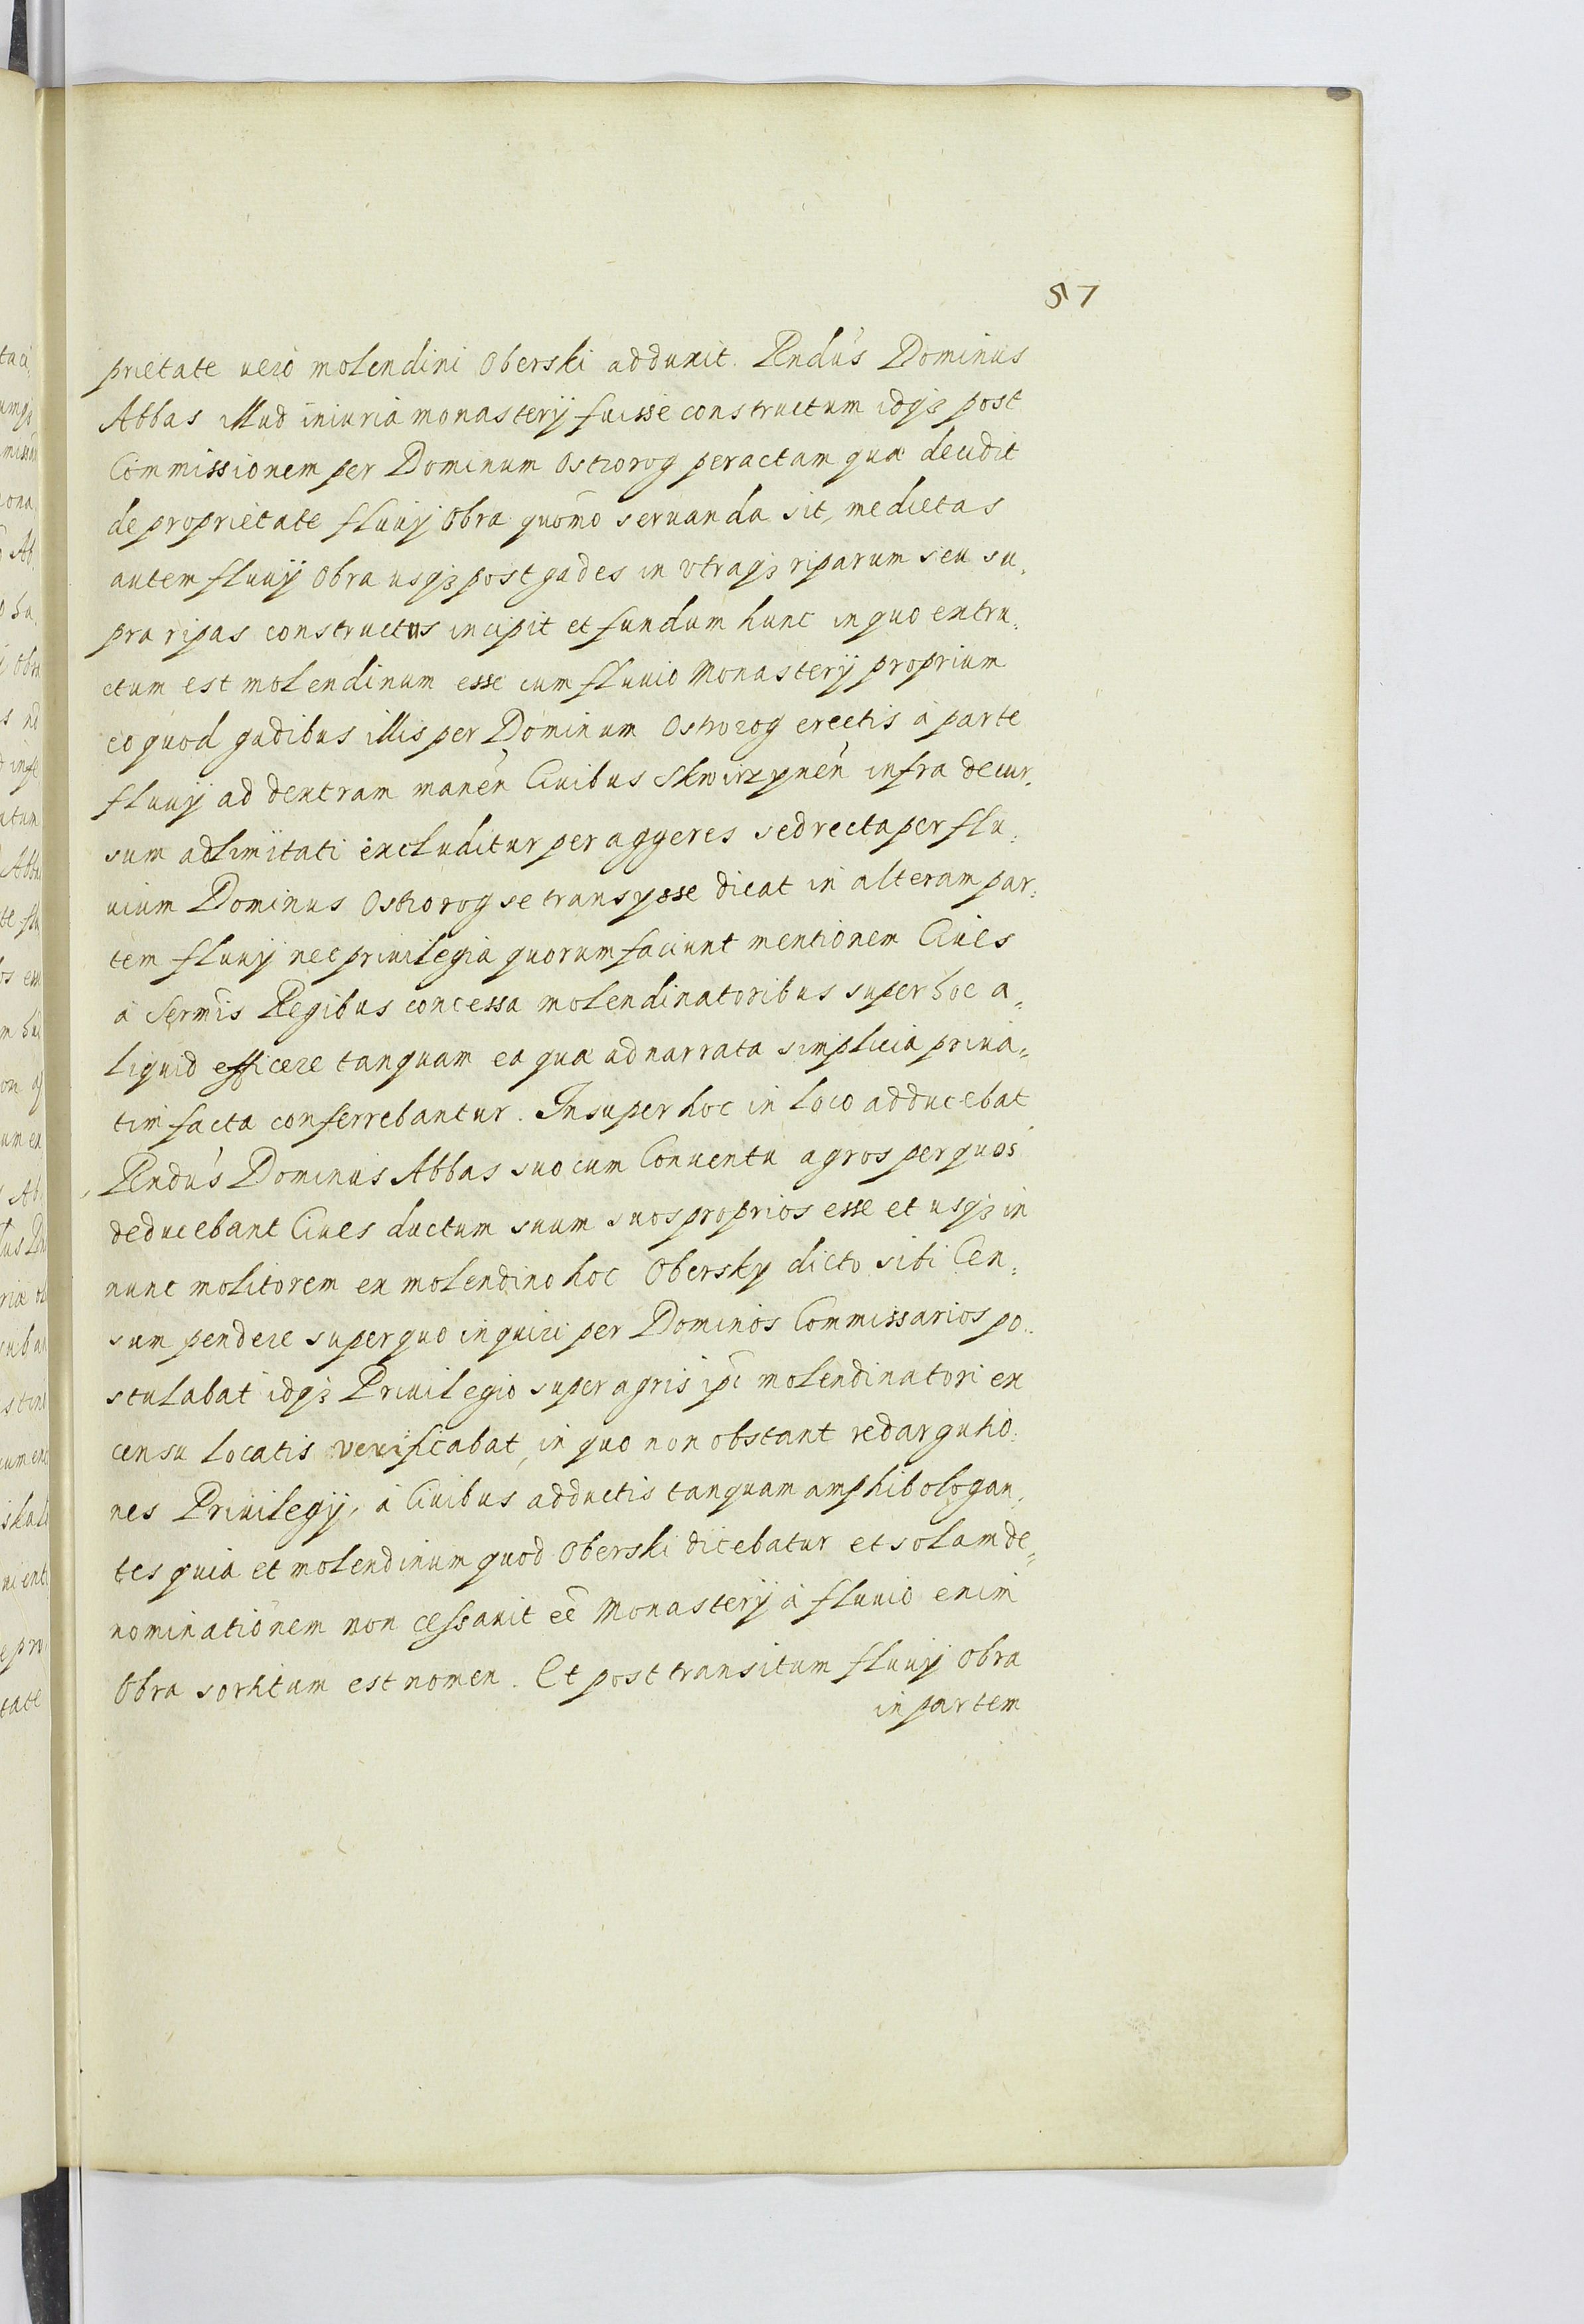 57
prietate uero molendini Oberski adduxit. Rndus Dominus
Abbas illud iniuria monasterij fuisse constructum idq3 post
Commissionem per Dominum Ostrorog peractam quæ decidit
de proprietate fluuij Obra quomo seruanda sit, medietas
autem fluuij Obra usq3 post gades in vtraq3 riparum seu su,
pra ripas constructus incipit et fundum hunc in quo extru,
ctum est molendinum esse cum fluuio Monasterij proprium
eo quod gadibus illis per Dominum Ostrorog erectis à parte
fluuij ad dextram manen Ciuibus Skwirzynen infra decur,
sum adlimitati excluditur per aggeres sed recta per flu,
uium Dominus Ostrorog se transysse dicat in alteram par,
tem fluuij nec priuilegia quorum faciunt mentionem Ciues
à Sermis Regibus concessa molendinatoribus super hoc a,
liquid efficere tanquam ea quæ ad narrata simplicia priua,
tim facta conferrebantur. Insuper hoc in loco adducebat
Rndus Dominus Abbas suo cum Conuentu agros per quos
deducebant Ciues ductum suum suos proprios esse et usq3 in
nunc molitorem ex molendino hoc Obersky dicto sibi Cen,
sum pendere super quo inquiri per Dominos Commissarios po,
stulabat idq3 Priuilegio super agris ipi molendinatori ex
censu locatis verificabat, in quo non obstant redargutio,
nes Priuilegij, à Ciuibus adductis tanquam amphibologan,
tes quia et molendinum quod Oberski dicebatur et solam de,
nominationem non cessauit ee Monasterij à fluuio enim
Obra sortitum est nomen. Et post transitum fluuij Obra
in partem